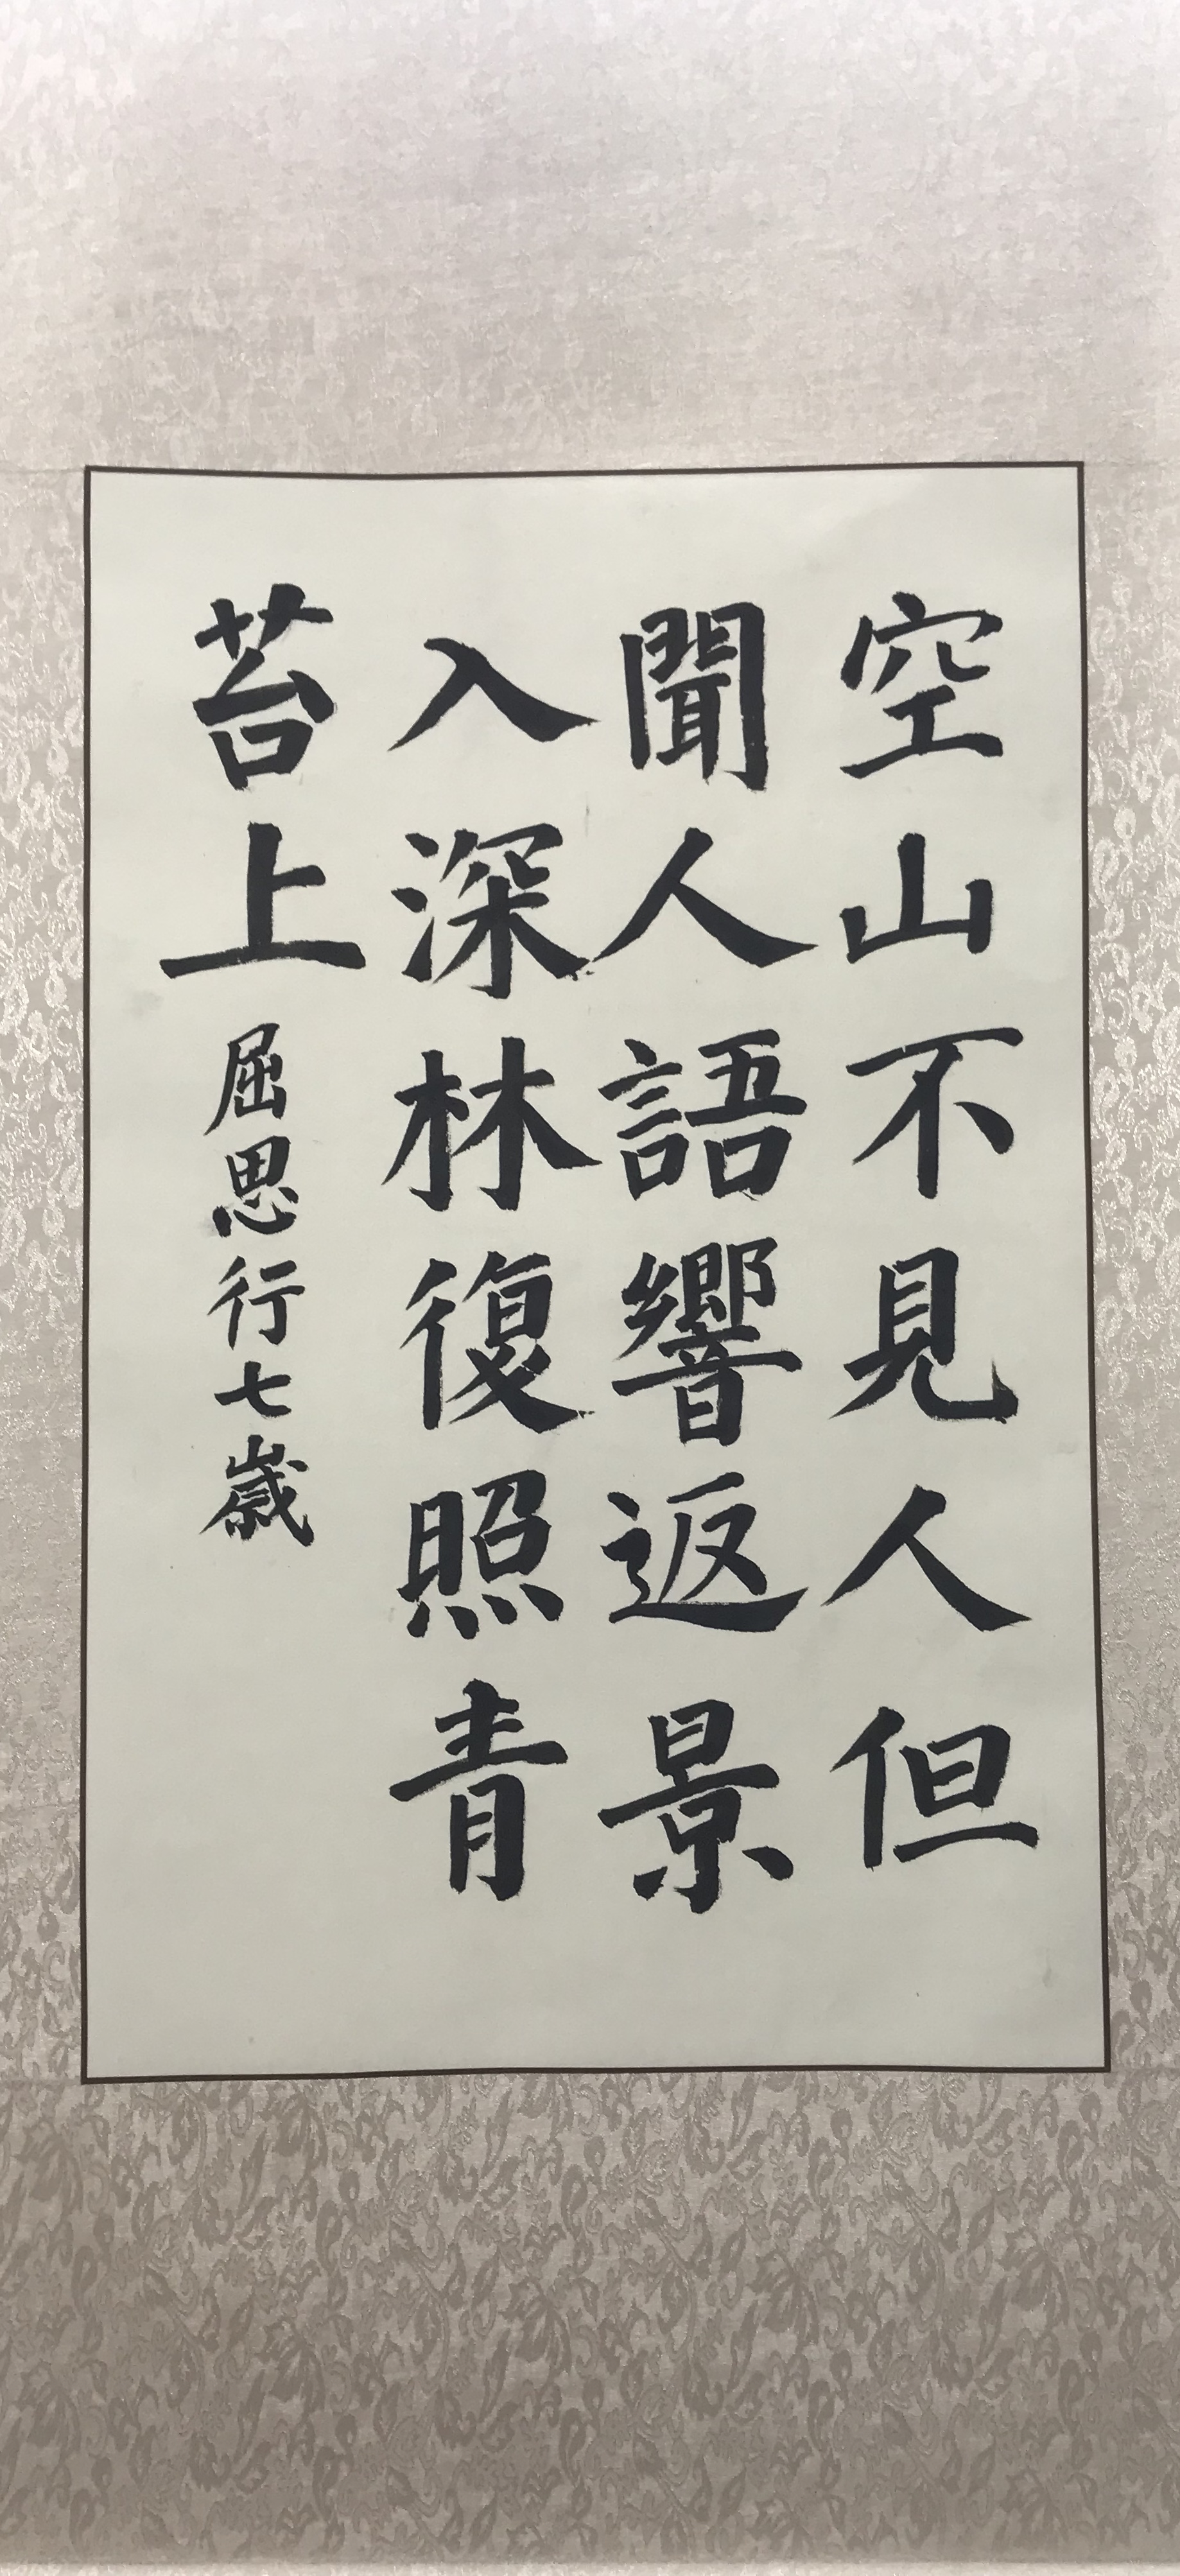 空山不見人但
聞人語響返景
入深林復照青
苔上 屈思行七歲